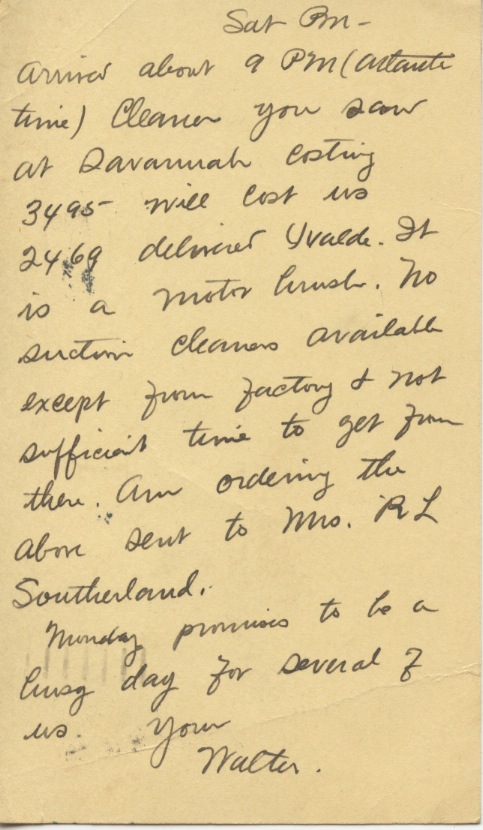 Sat Pm-
Arrived about 9 PM (Atlanta
time) Cleaner you saw
at Savannah costing
3495 will cost us
2469 delivered Yvalde. It
is a motor brush. No
suction cleaners available
except from factory & not
sufficient time to get from
there. Am ordering the
above sent to Mrs. RL
Southerland.
Monday promises to be a
busy day for several of
us. Your
Walter.